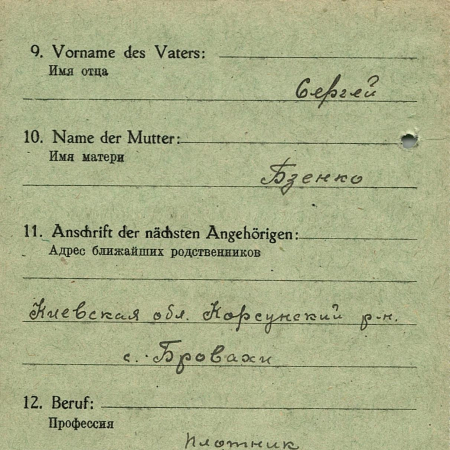 9. Vorname des Vaters:
Имя отца
Сергей
10. Name der Mutter:
Имя матери
Бзенко
11. Anschrift der nächsten Angehörigen:
Адрес ближайших родственников
Киевская обл. Корсунский р-н.
с. Бровахи
12. Beruf:
Профессия
плотник